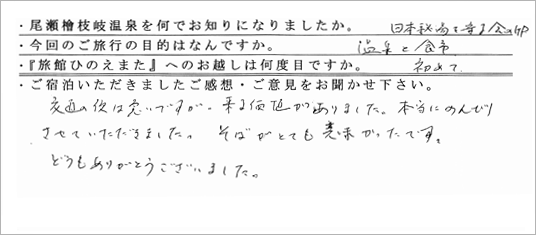 ・尾瀬檜枝岐温泉を何でお知りになりましたか。 日本秘湯を守る会のHP
・今回のご旅行の目的はなんですか。 温泉と食事
・『旅館ひのえまた』へのお越しは何度目ですか。 初めて
・ご宿泊いただきましたご感想・ご意見をお聞かせ下さい。
交通の便は悪いですが、来る価値がありました。本当にのんびり
させていただきました。そばがとても美味かったです。
どうもありがとうございました。